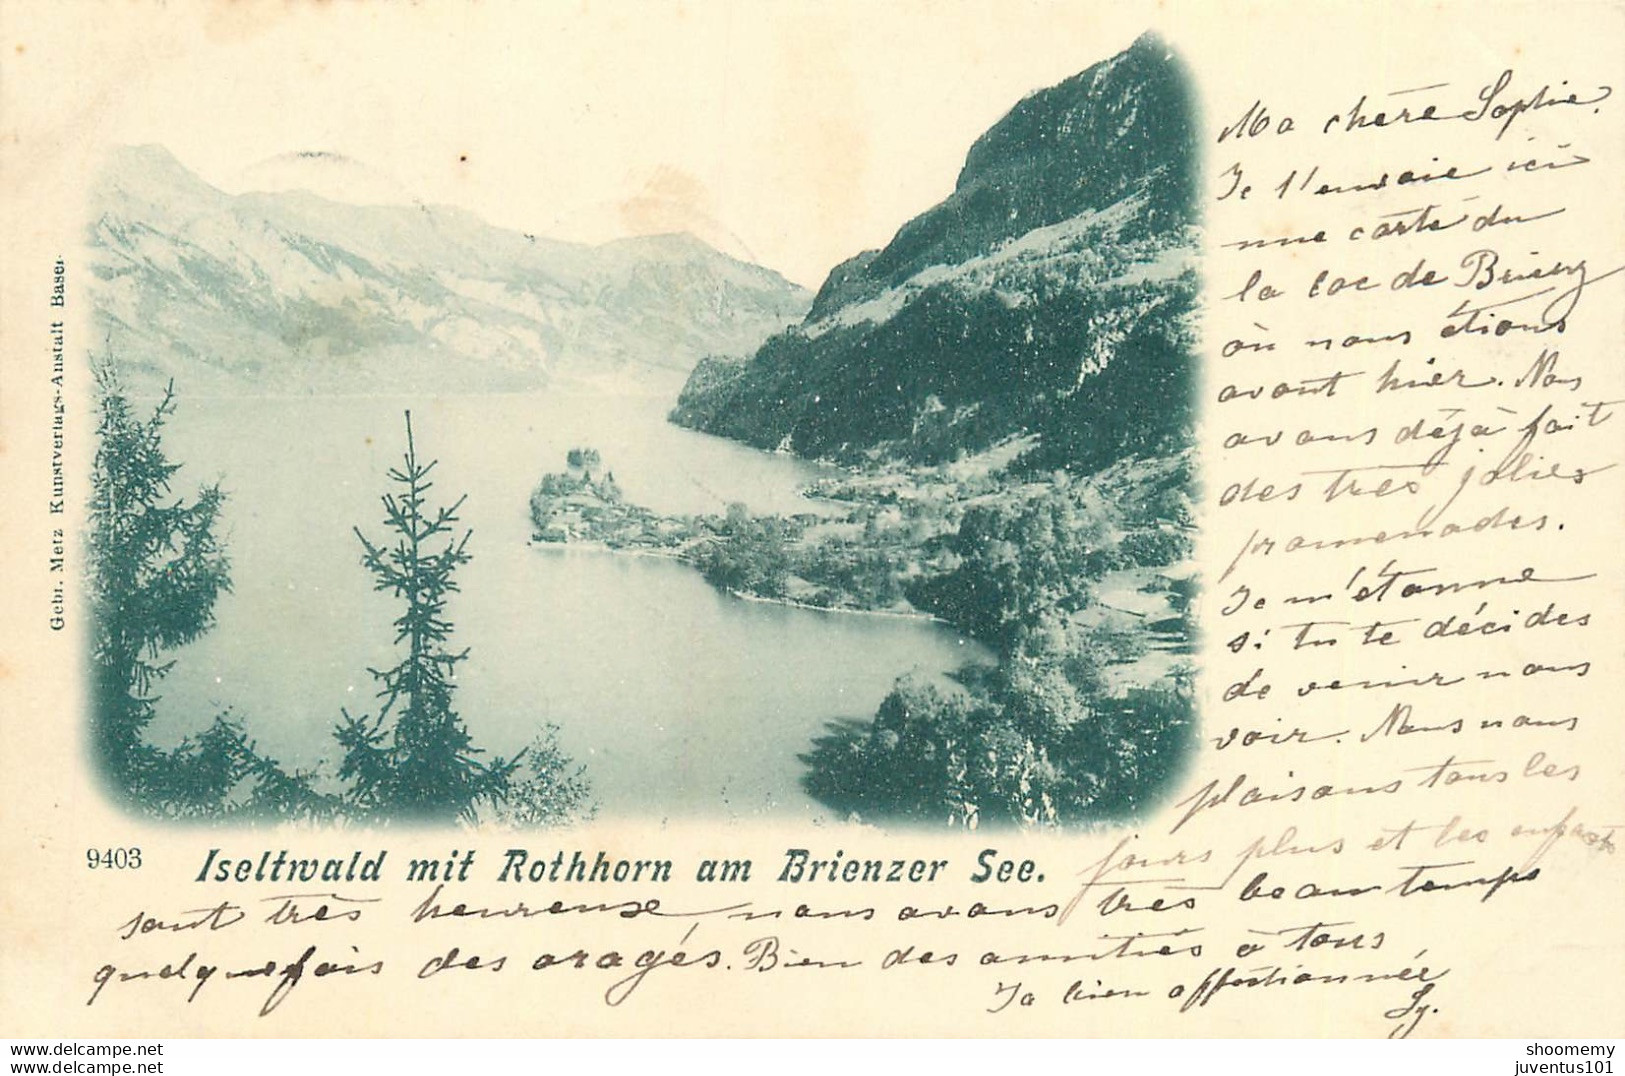 Ma chère Sophie.
Je t'envoie ici
une carte du
la lac de Brienz
où nous étions
avant hier. Nous
avons déjà fait
des très jolies
promenades.
Je m'étonne
si tu te décides
de venir nous
voir. Nous nous
plaisons tous les
jours plus et les enfants
sont très heureuse, nous avons très beau temps
quelquefois des oragés. Bien des amitiés à tous
Ta bien affectionnée
Sy.
9403 Iseltwald mit Rothhorn am Brienzer See.
Gebr. Metz Kunstverlags-Anstalt Basel.
www.delcampe.net
shoomemy
juventus101